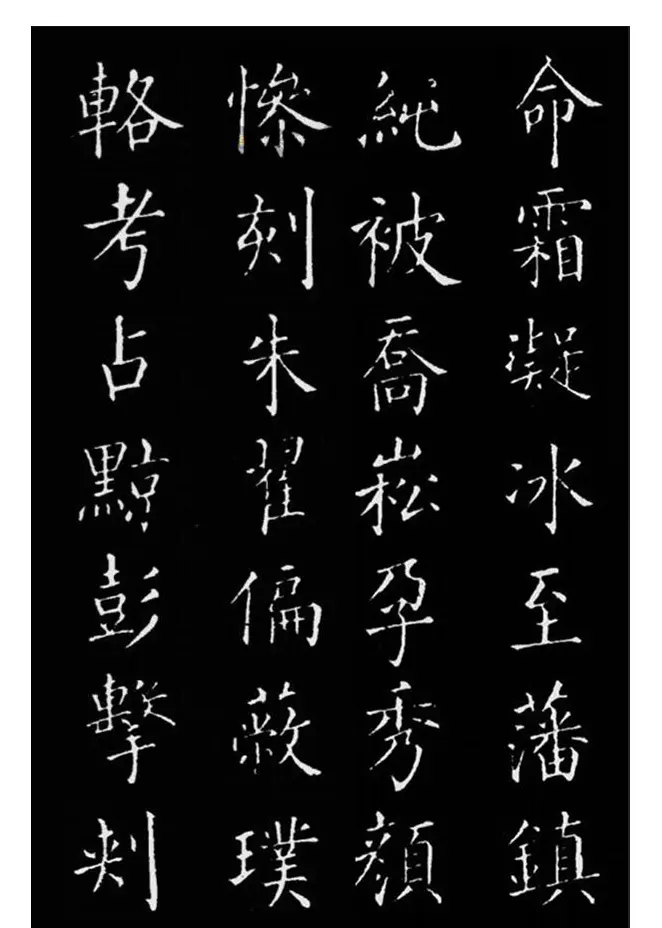 命霜凝冰至藩鎮
純被喬崧孕秀顏
慘刻朱翟偏蔽璞
輅考占黥彭擊剌